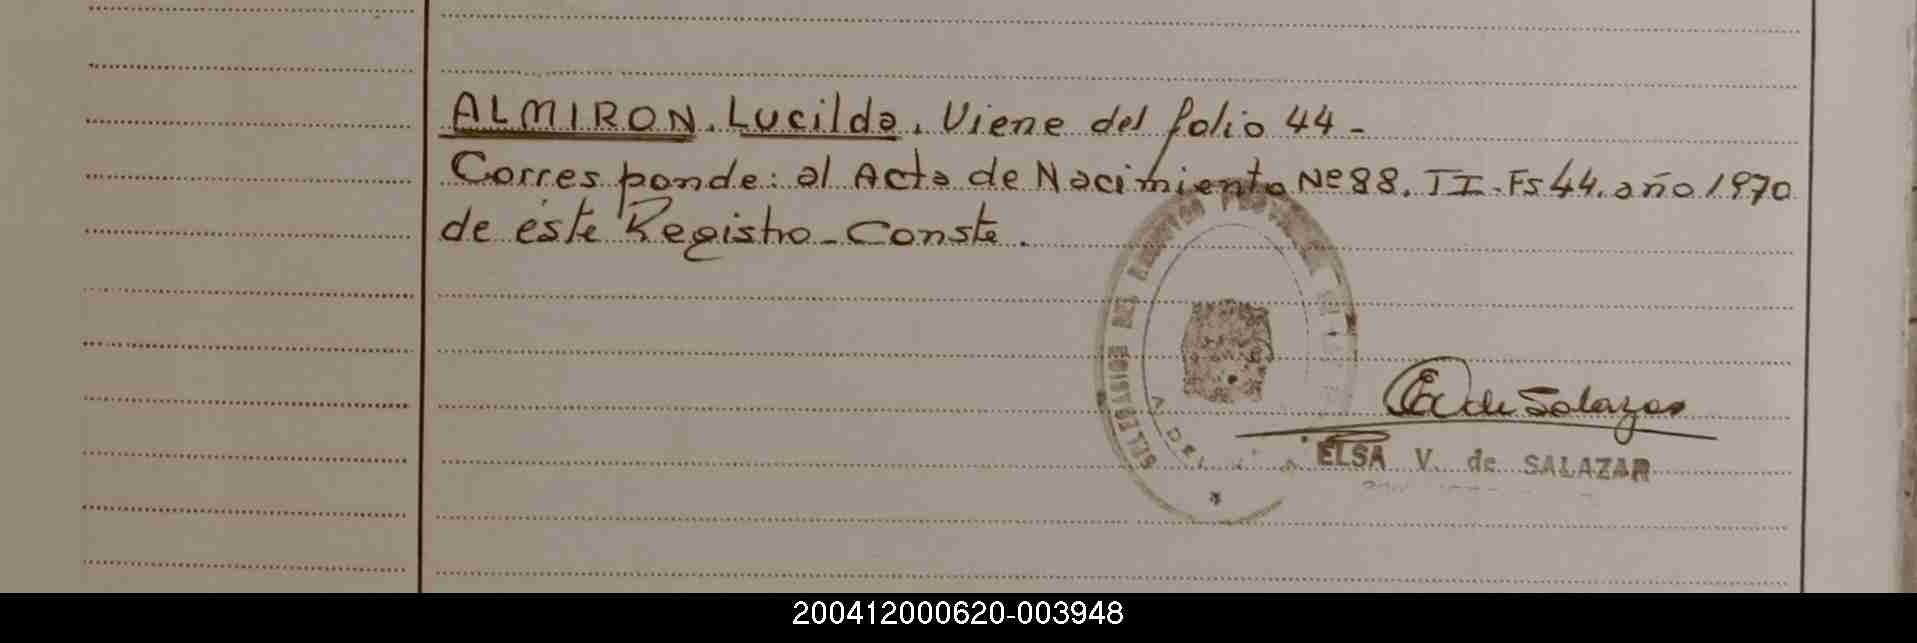 ALMIRON. Lucilda. Viene del folio 44 -
Corresponde: al Acta de Nacimiento Nº 88. TI. Fs 44. año 1970
de éste Registro - Conste.
de Salazar
ELSA V. de SALAZAR
200412000620-003948